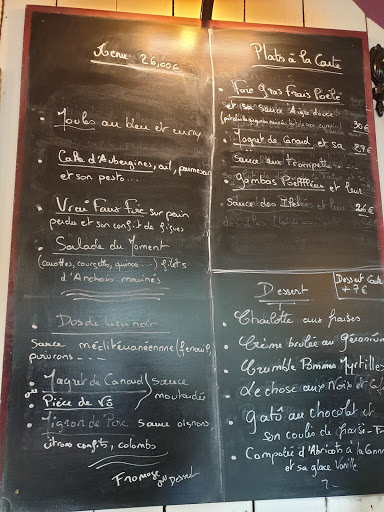 Menu 26,00€
• Moules au bleu et curry
• Cake d'Aubergines, ail, parmesan
et son pesto...
• Vrai Faux Fire sur pain
perdu et son confit de figues
• Salade du Moment
(carottes, courgettes, quinoa...) filets
d'Anchois marinés
• Dos de lieu noir
sauce méditéranéennne (fenouil,
poivrons - - -
• Magret de Canard
ou
• Pièce de
sauce
moutarde
• Mignon de Porc sauce oignons,
citrons confits, colombo
Fromage
ou Dessert
Plats à la Carte
• Foie Gras Frais Poêlé
et sa sauce Aigre douce
30€
• Magret de Canard et sa
sauce aux trompette
27€
• Gambas et leur
Sauce des Iles
26€
Dessert
Dessert Carte
+ 7€
• Charlotte aux fraises
• Crème brulée au Géranium
• Crumble Pommes Myrtilles
• Le chose aux Noix et
• Gatô au chocolat et
son coulis de fraise -
• Compotée d'Abricots à la
et sa glace Vanille